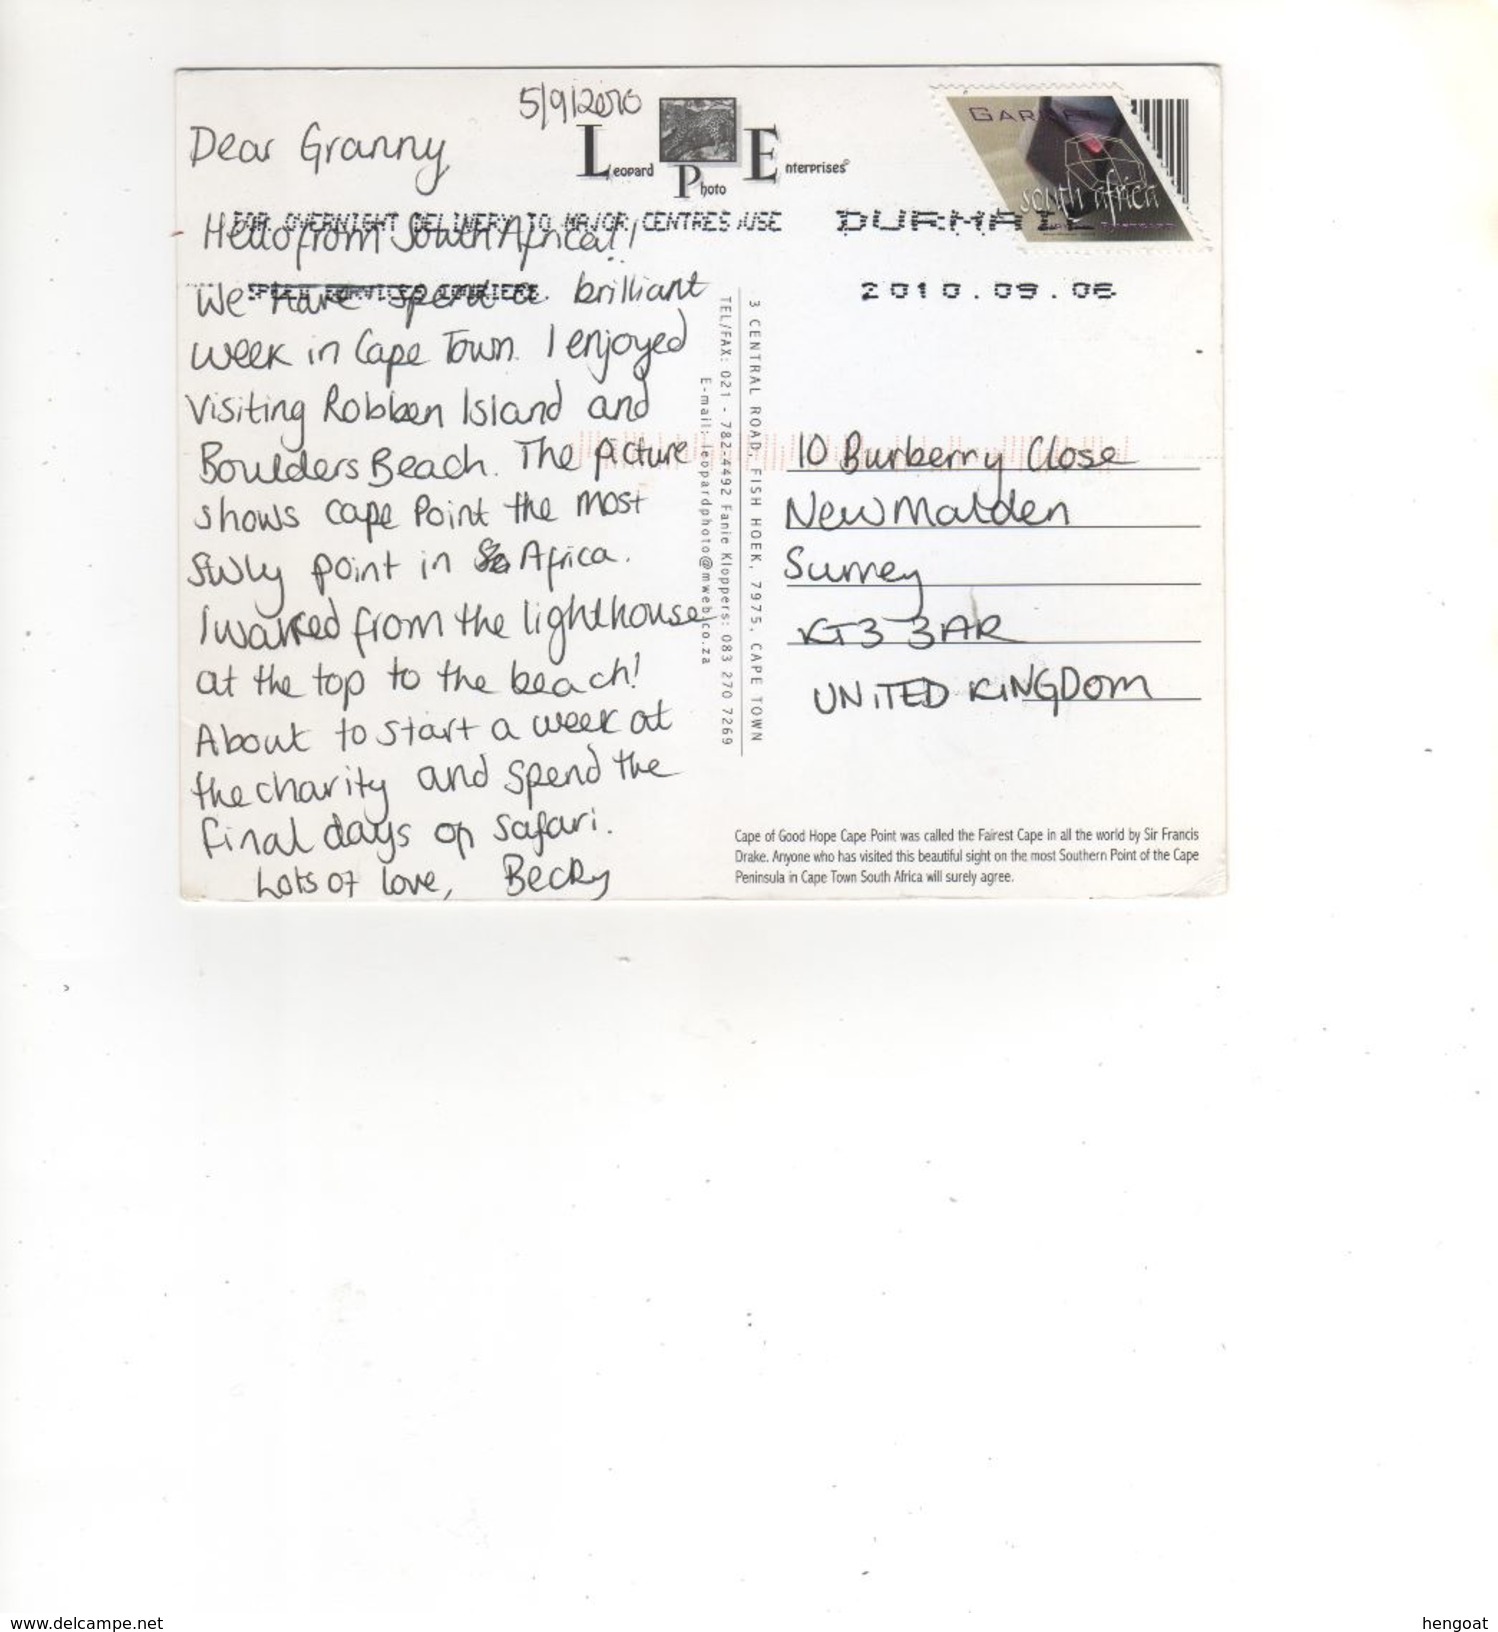 5/9/2010
Dear Granny
Leopard Photo Enterprises®
GARNET
south africa
FOR OVERNIGHT DELIVERY TO MAJOR CENTRES USE
DURMAIL
Hello from South Africa!!
SPEED SERVICES COURIERS.
2010.09.06
We have spent a brilliant
week in Cape Town. I enjoyed
visiting Robben Island and
Boulders Beach. The picture
shows Cape Point the most
SWly point in Africa.
I walked from the lighthouse
at the top to the beach!
About to start a week at
the charity and spend the
final days on safari.
Lots of love, Becky
3 CENTRAL ROAD, FISH HOEK, 7975, CAPE TOWN
TEL/FAX: 021 - 782-4492 Fanie Kloppers: 083 270 7269
E-mail: leopardphoto@mweb.co.za
10 Burberry Close
New Malden
Surrey
KT3 3AR
UNITED KINGDOM
Cape of Good Hope Cape Point was called the Fairest Cape in all the world by Sir Francis
Drake. Anyone who has visited this beautiful sight on the most Southern Point of the Cape
Peninsula in Cape Town South Africa will surely agree.
www.delcampe.net
hengoat